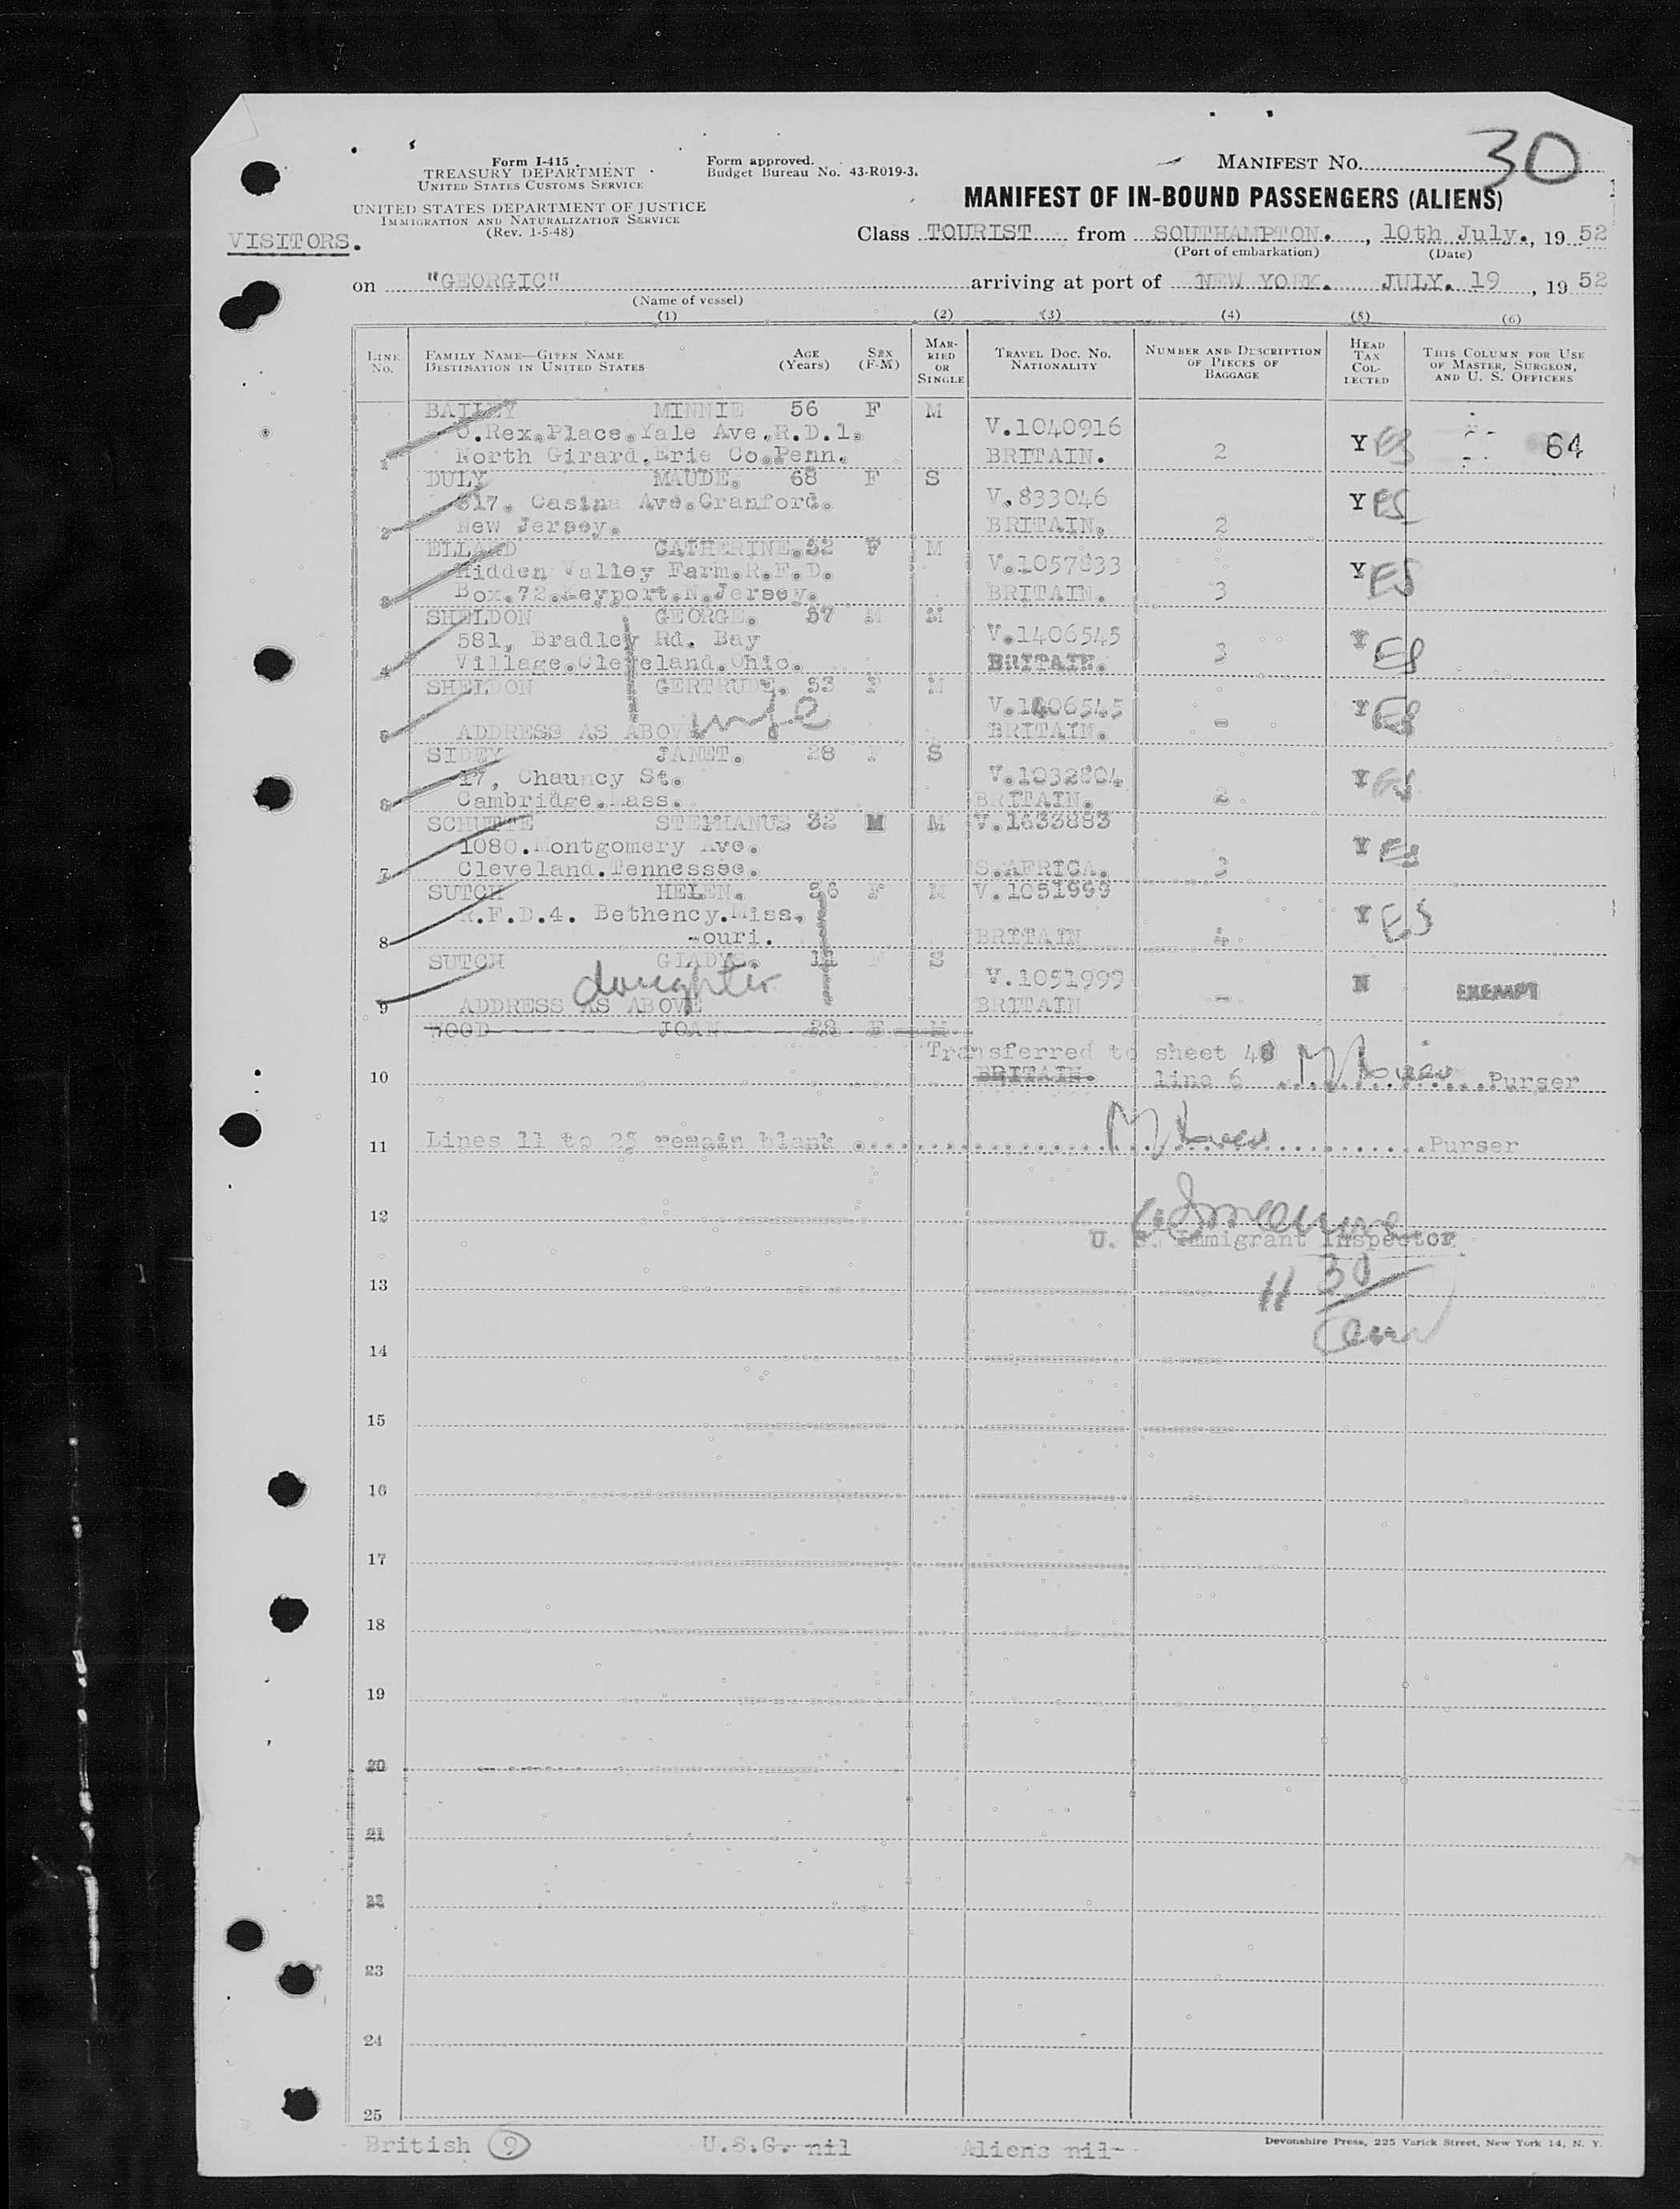 Form I-415
TREASURY DEPARTMENT
UNITED STATES CUSTOMS SERVICE
UNITED STATES DEPARTMENT OF JUSTICE
IMMIGRATION AND NATURALIZATION SERVICE
(Rev. 1-5-48)
Form approved.
Budget Bureau No. 43-R019-3.
MANIFEST No. 30
MANIFEST OF IN-BOUND PASSENGERS (ALIENS)
VISITORS.
Class TOURIST from SOUTHAMPTON. , 10th July. , 19 52
(Port of embarkation) (Date)
on "GEORGIC" arriving at port of NEW YORK. JULY. 19 , 19 52
(Name of vessel)
(1) (2) (3) (4) (5) (6)
LINE No. FAMILY NAME—GIVEN NAME DESTINATION IN UNITED STATES AGE (Years) SEX (F-M) MARRIED OR SINGLE TRAVEL DOC. NO. NATIONALITY NUMBER AND DESCRIPTION OF PIECES OF BAGGAGE HEAD TAX COLLECTED THIS COLUMN FOR USE OF MASTER, SURGEON, AND U. S. OFFICERS
BAILEY MINNIE 56 F M
.Rex.Place.Yale Ave.R.D.1. V.1040916
1 North Girard.Erie Co.Penn. BRITAIN. 2 YES 64
DULY MAUDE. 68 F S
317. Casina Ave.Cranford. V.833046
2 New Jersey. BRITAIN. 2 YES
ELLARD CATHERINE. 52 F M
Hidden Valley Farm.R.F.D. V.1057833
3 Box.72.Keyport.N.Jersey. BRITAIN. 3 YES
SHELDON GEORGE. 57 M M
581, Bradley Rd. Bay V.1406545
4 Village.Cleveland.Ohio. BRITAIN. 3 YES
SHELDON GERTRUDE. 53 F M
V.1406545
5 ADDRESS AS ABOVE wife BRITAIN. - YES
SIDEY JANET. 28 F S
17, Chauncy St. V.1032804
6 Cambridge.Mass. BRITAIN. 2 YES
SCHUTTE STEPHANUS 32 M M V.1633883
1080.Montgomery Ave.
7 Cleveland.Tennessee. S.AFRICA. 3 YES
SUTCH HELEN. 36 F M V.1051999
R.F.D.4. Bethency.Miss.
8 -ouri. BRITAIN 4. YES
SUTCH GLADYS. 11 F S
daughter V.1051999
9 ADDRESS AS ABOVE BRITAIN - N EXEMPT
WOOD JOAN 28 F M.
Transferred to sheet 48
10 BRITAIN. line 6 Purser
11 Lines 11 to 25 remain blank Purser
12
U. S. Immigrant Inspector
13 11 30
14
15
16
17
18
19
20
21
22
23
24
25
British 9 U.S.C. nil Aliens nil-
Devonshire Press, 225 Varick Street, New York 14, N. Y.